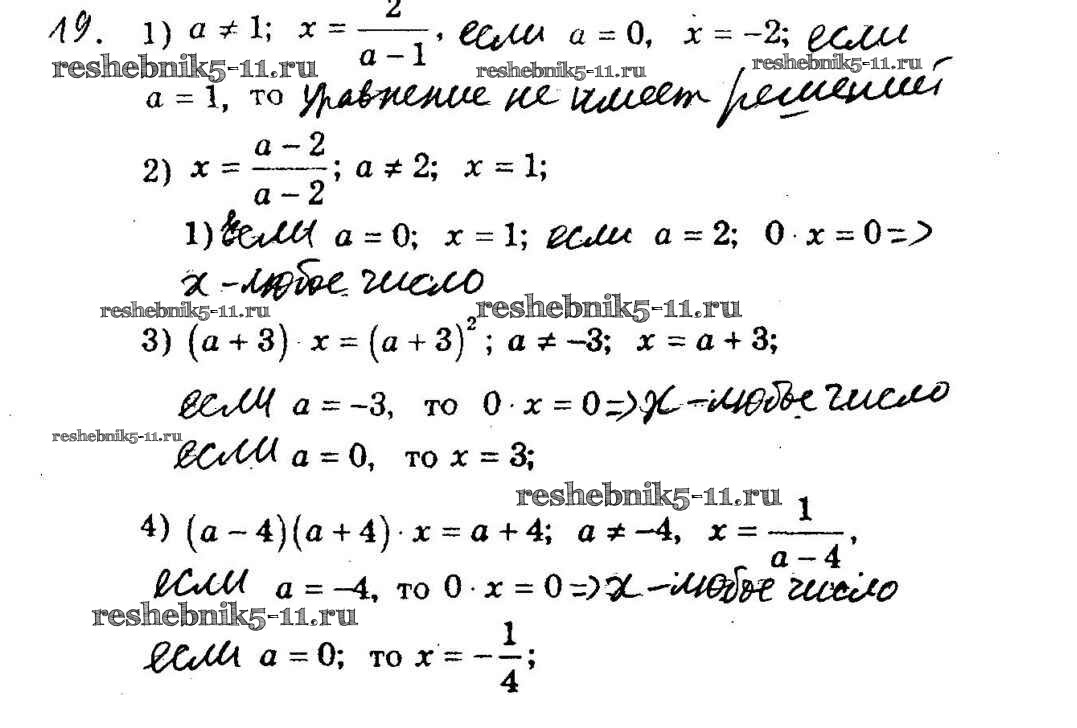 19. 1) a ≠ 1; x = 2/(a − 1), если a = 0, x = −2; если
reshebnik5-11.ru reshebnik5-11.ru reshebnik5-11.ru
a = 1, то уравнение не имеет решений
2) x = (a − 2)/(a − 2); a ≠ 2; x = 1;
1) если a = 0; x = 1; если a = 2; 0 · x = 0 =>
x - любое число
reshebnik5-11.ru reshebnik5-11.ru
3) (a + 3) · x = (a + 3)²; a ≠ −3; x = a + 3;
если a = −3, то 0 · x = 0 => x - любое число
reshebnik5-11.ru
если a = 0, то x = 3;
reshebnik5-11.ru
4) (a − 4)(a + 4) · x = a + 4; a ≠ −4, x = 1/(a − 4),
если a = −4, то 0 · x = 0 => x - любое число
reshebnik5-11.ru
если a = 0; то x = −1/4;